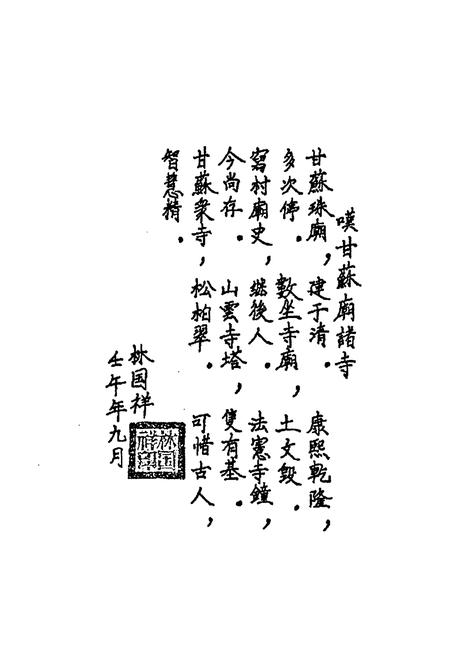 嘆甘蘇廟諸寺
甘蘇珠廟，建于清。康熙乾隆，
多次停。數坐寺廟，土文毀。
寫村廟史，继後人。法憲寺鐘，
今尚存。山雲寺塔，隻有基。
甘蘇衆寺，松柏翠。可惜古人，
智慧精。
林国祥
壬午年九月
林国祥印